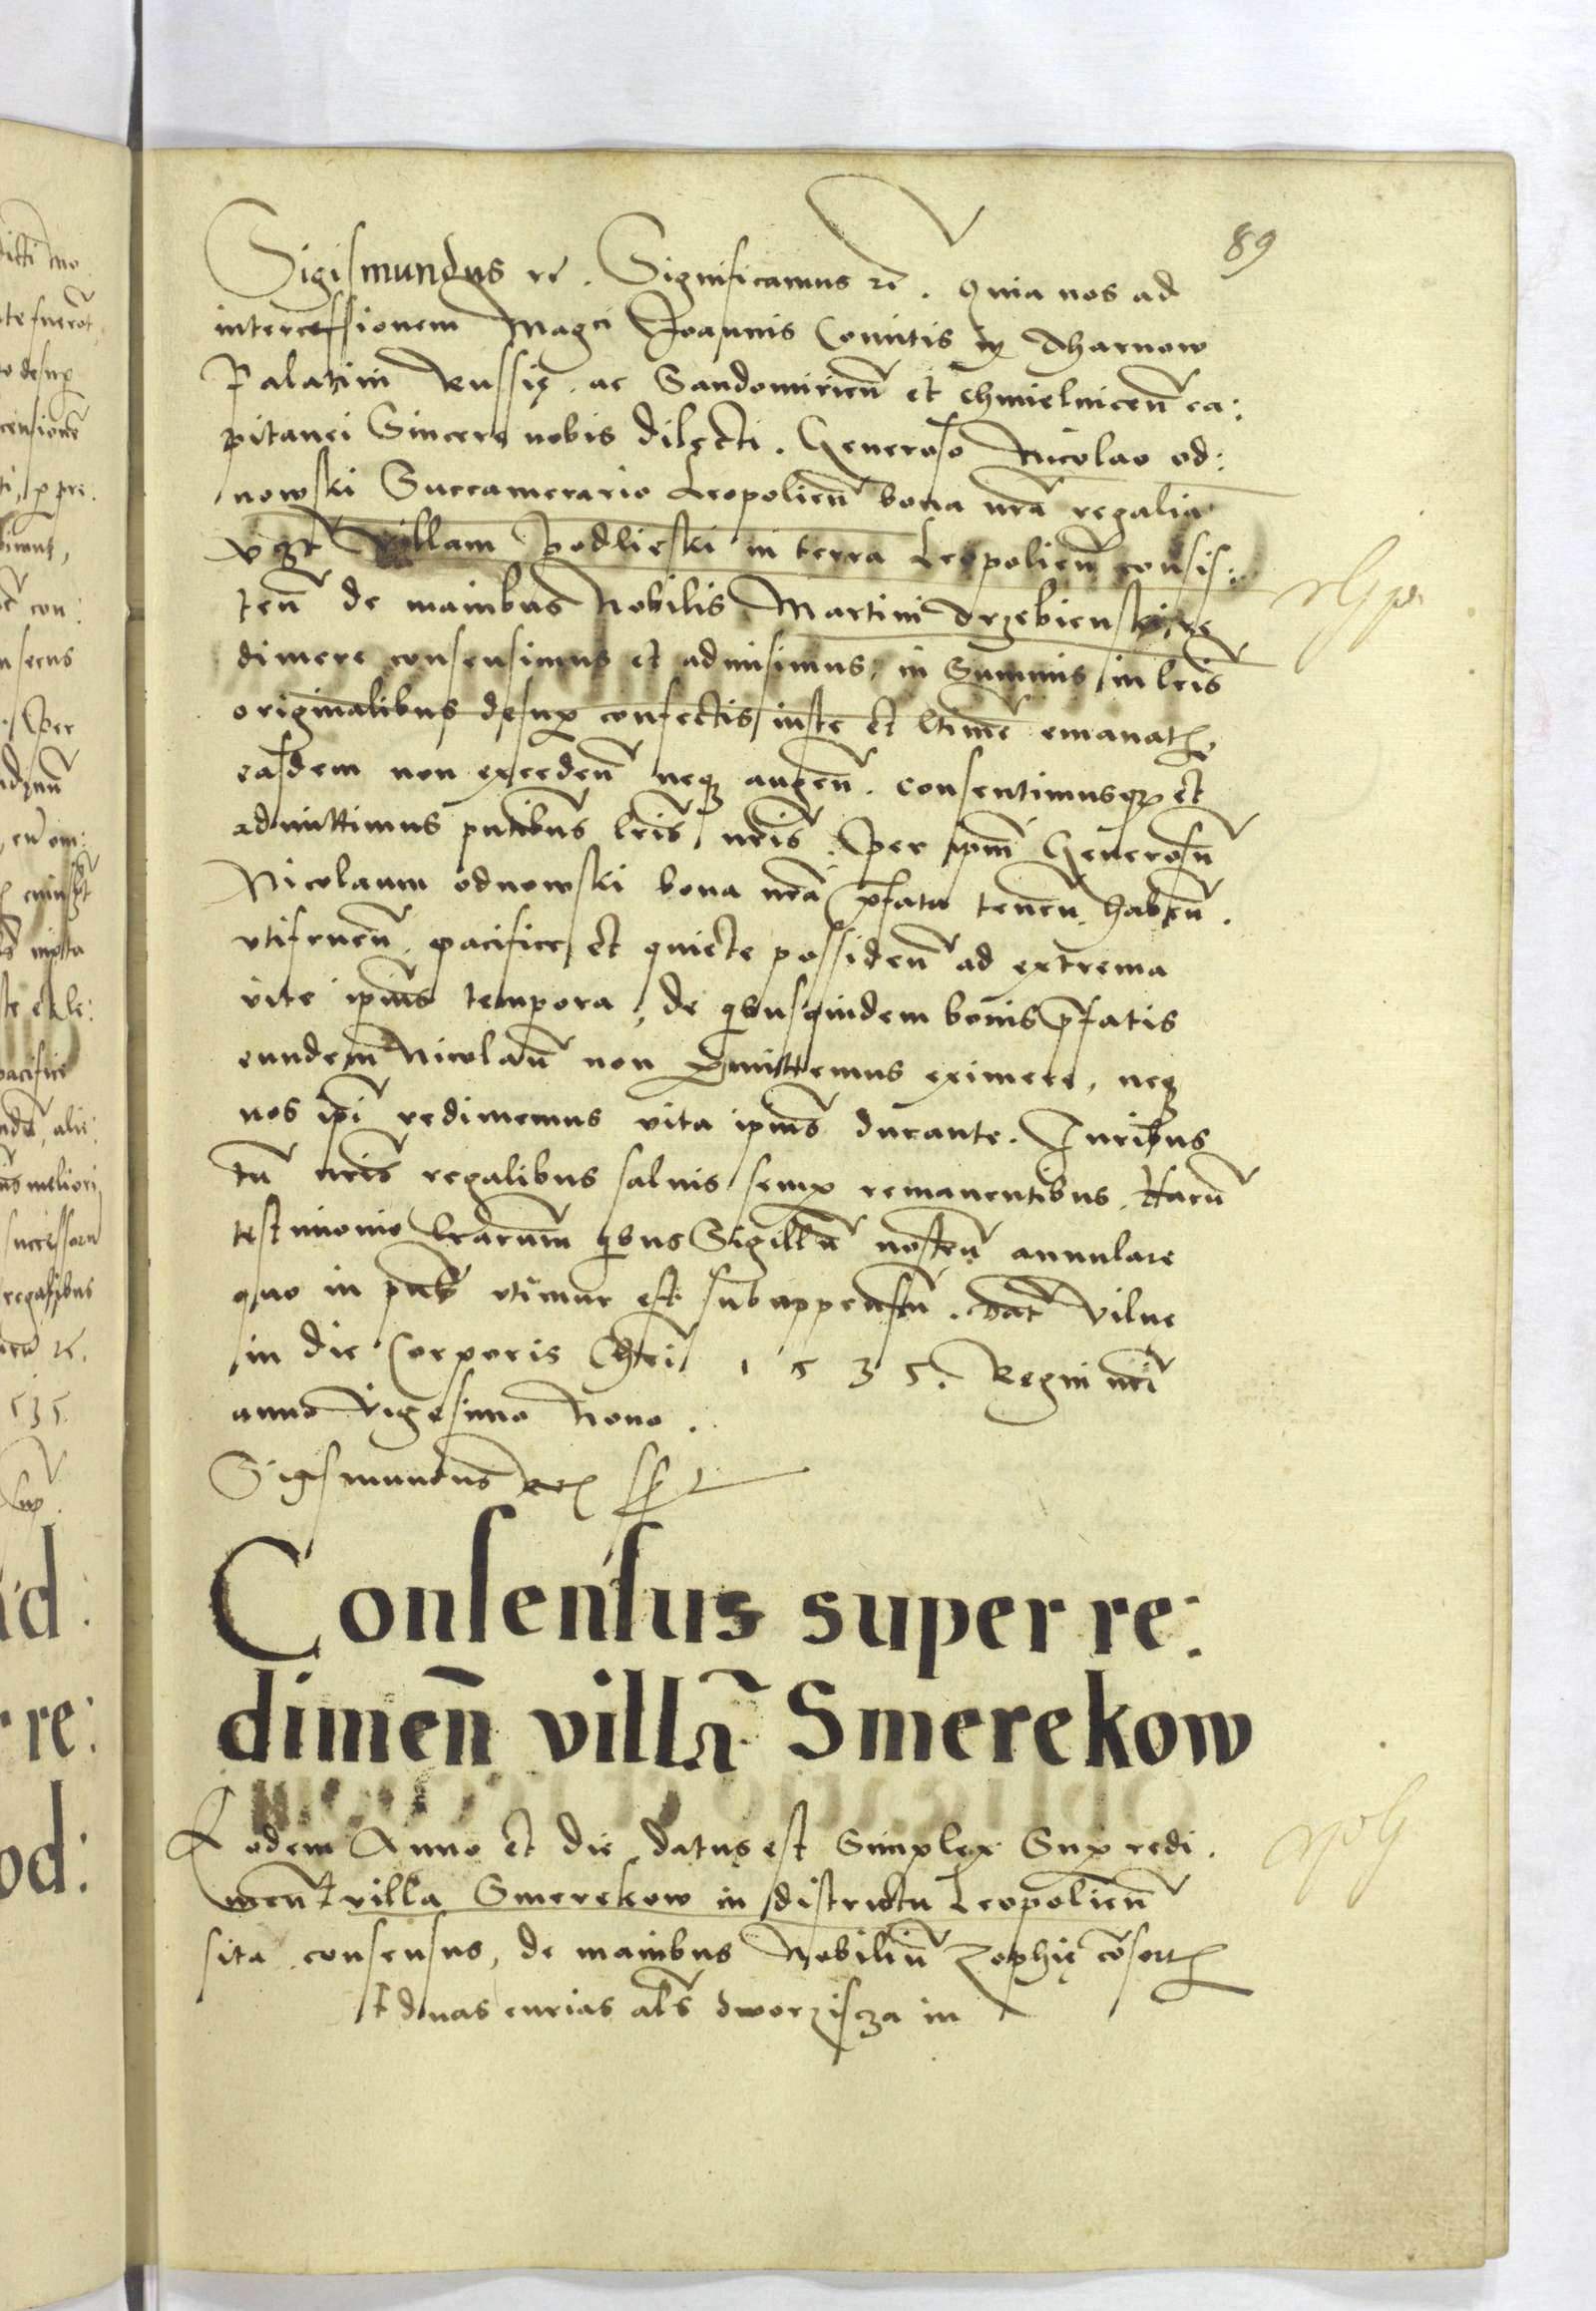 89
Sigismundus rc̄. Significamus rc̄. Quia nos ad
intercessionem Magci Joannis Comitis in Tharnow
Palatini Russię ac Sandomirien̄ et Chmielnicen̄ ca:
pitanei Sincere nobis dilecti. Generoso Nicolao od:
nowski Succamerario Leopolien̄ bona nrā regalia
vɜt villam Podlieski in terra Leopolien̄ consis:
ten̄ de manibus Nobilis Martini Trzebienski, re
dimere consensimus et admisimus, in Summis in lrīs
originalibus desup confectis iuste et ltimē emanatꝭ
easdem non exceden̄ neqꝫ augen̄. Consentimusqꝫ et
admittimus pntibus lrīs nrīs. Per ipm̄ Generosū
Nicolaum odnowski bona nrā pfata tenen̄ haben̄.
vtifruen̄. pacifice et quiete possiden̄ ad extrema
vite ipiūs tempora, de qbusquidem bonis pfatis
eundem Nicolaū non pmittemus eximere, neqꝫ
nos ipī redimemus vita ipiūs durante. Juribus
tn̄ nrīs regalibus salvis semp remanentibus. Harū
testimonio lrārum qbus Sigillū nostrū annulare
quo in pntī vtimur est subappensū. Dat̄ Vilne
in die Corporis Chrī 1535. Regni nrī
anno Vigesimo Nono.
Sigismundus Rex sst
Consensus super re:
dimen̄ villā Smerekow
Eodem Anno et die datus est Simplex Sup redi
men̄ ꝉ villa Smerekow in districtu Leopolien̄
sita consensus, de manibus Nobiliū Zophię cōsortꝭ
ꝉ duas curias als̄ dworziscza in